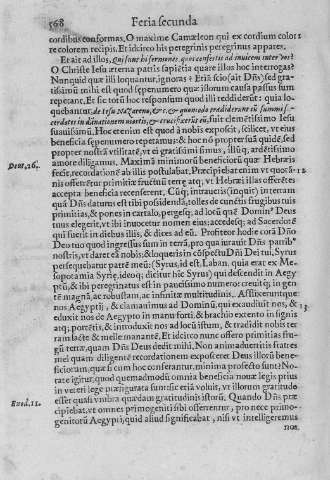 568 Feria secunda
cordibus conformas. O maxime Camæleon qui ex cordium colore
re colorem recipis. Et idcirco his peregrinis peregrinus appares.
Et ait ad illos, Qui sunt hi sermones quos confertis ad inuicem
O Christe Iesu æterna patris sapiētia quare illos hoc interrogas?
Nunquid quæ illi loquantur, ignoras? Etiā scio (ait Dñs) sed gra-
tissimū mihi est quod sepenumero quæ illorum causa passus sum
repetant. Et sic totū hoc responsum quod illi reddiderūt: quia lo-
quebantur, de Iesu Nazareno, &c. & quomodo tradiderunt eū summi sa-
cerdotes in dānationem mortis, & crucifixerūt eū, fuit clemētissimo Iesu
suauissimū. Hoc etenim est quod à nobis exposcit, scilicet, vt eius
beneficia sepenumero repetamus: & hoc nō propter suā quidē, sed
propter nostrā vtilitatē, vt ei gratissimi simus, illūq; ardētissimo
amore diligamus. Maximā minimorū beneficiorū quæ Hebræis
Deut. 26. fecit, recordationē ab illis postulabat. Præcipiebat enim vt quotā- 12
nis offerrētur primitiæ fructuū terræ atq; vt Hebræi illas offerētes
accepta beneficia recenserent. Cūq; intraueris (inquit) terram
quā Dñs daturus est tibi possidendā, tolles de cunctis frugibus tuis
primitias, & pones in cartalo, pergesq; ad locū quē Domin⁹ Deus
tuus elegerit, vt ibi inuocetur nomen eius: accedesq; ad Sacerdotē
qui fuerit in diebus illis, & dices ad eū. Profiteor hodie corā Dño
Deo tuo quod ingressus sum in terrā, pro qua iurauit Dñs patrib⁹
nostris, vt daret eā nobis; & loqueris in cōspectu Dñi Dei tui, Syrus
persequebatur patrē meū: (Syrus, id est. Laban. quia erat ex Me-
sopotamia Syriæ, ideoq; dicitur hic Syrus) qui descendit in Aegy
ptū, & ibi peregrinatus est in paucissimo numero: creuitq; in gen-
tē magnā, ac robustam, ac infinitæ multitudinis. Afflixeruntque
nos Aegyptij, & clamauimus ad Dominū, qui exaudiuit nos, & 13
eduxit nos de Aegypto in manu forti, & brachio extento in signis
atq; portētis, & introduxit nos ad locū istum, & tradidit nobis ter
ram lacte & melle manantē. Et idcirco nunc offero primitias fru-
gū terræ, quam Dñs Deus dedit mihi. Non animaduertitis fratres
mei quam diligentē recordationem exposceret Deus illorū bene-
ficiorum, quæ si cum hoc conferantur, minima profecto sunt? No-
tate igitur, quod quemadmodū omnia beneficia nouæ legis prius
in veteri lege præfigurata fuisse: sic etiā voluit, vt illorum gratitudo
esset quasi vmbra quædam gratitudinis istorū. Quando Dñs præ
Exod. 12. cipiebat, vt omnes primogeniti sibi offerrentur, pro nece primo-
genitorū Aegypti, quid aliud significabat, nisi vt intelligeremus
nos